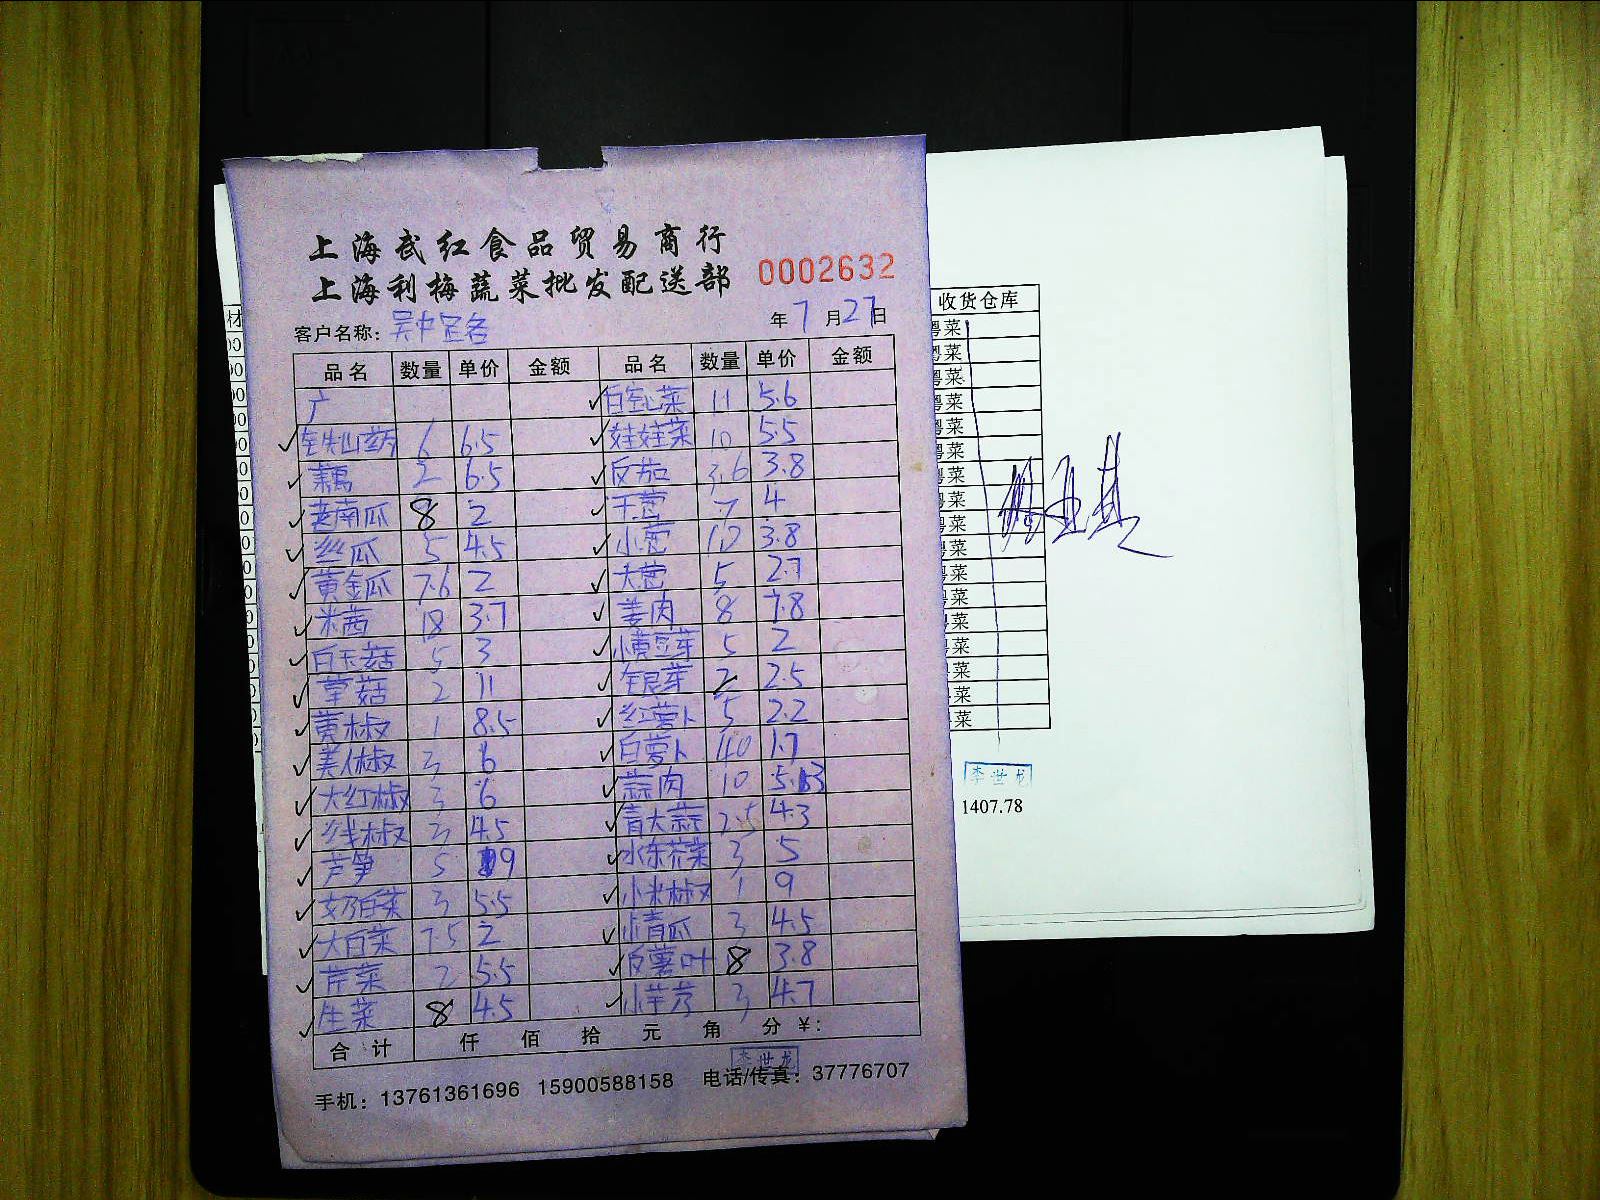 上海武红食品贸易商行
上海利梅蔬菜批发配送部 0002632
客户名称: 年 7 月 27 日
品名 数量 单价 金额 品名 数量 单价 金额
广 白空心菜 11 5.6
铁山药 6 6.5 娃娃菜 10 5.5
藕 2 6.5 反茄 3.6 3.8
老南瓜 8 2 干葱 7 4
丝瓜 5 4.5 小葱 12 3.8
黄金瓜 7.6 2 大葱 5 2.7
米茜 18 3.7 姜肉 8 7.8
白玉菇 5 3 小黄豆芽 5 2
草菇 2 11 银芽 2 2.5
黄椒 1 8.5 红萝卜 5 2.2
美人椒 3 6 白萝卜 40 1.7
大红椒 3 6 蒜肉 10
线椒 3 4.5 青大蒜 2.5 4.3
芦笋 5 19 水东芥菜 3 5
奶白菜 3 5.5 小米椒 1 9
大白菜 7.5 2 小青瓜 3 4.5
芹菜 2 5.5 反薯叶 8 3.8
生菜 8 4.5 小芋艿 3 4.7
合计 仟 佰 拾 元 角 分 ¥:
李世龙
手机: 13761361696 15900588158 电话/传真: 37776707
收货仓库
粤菜
粤菜
粤菜
粤菜
粤菜
粤菜
粤菜
粤菜
粤菜
粤菜
粤菜
粤菜
粤菜
菜
菜
菜
菜
李世龙
1407.78